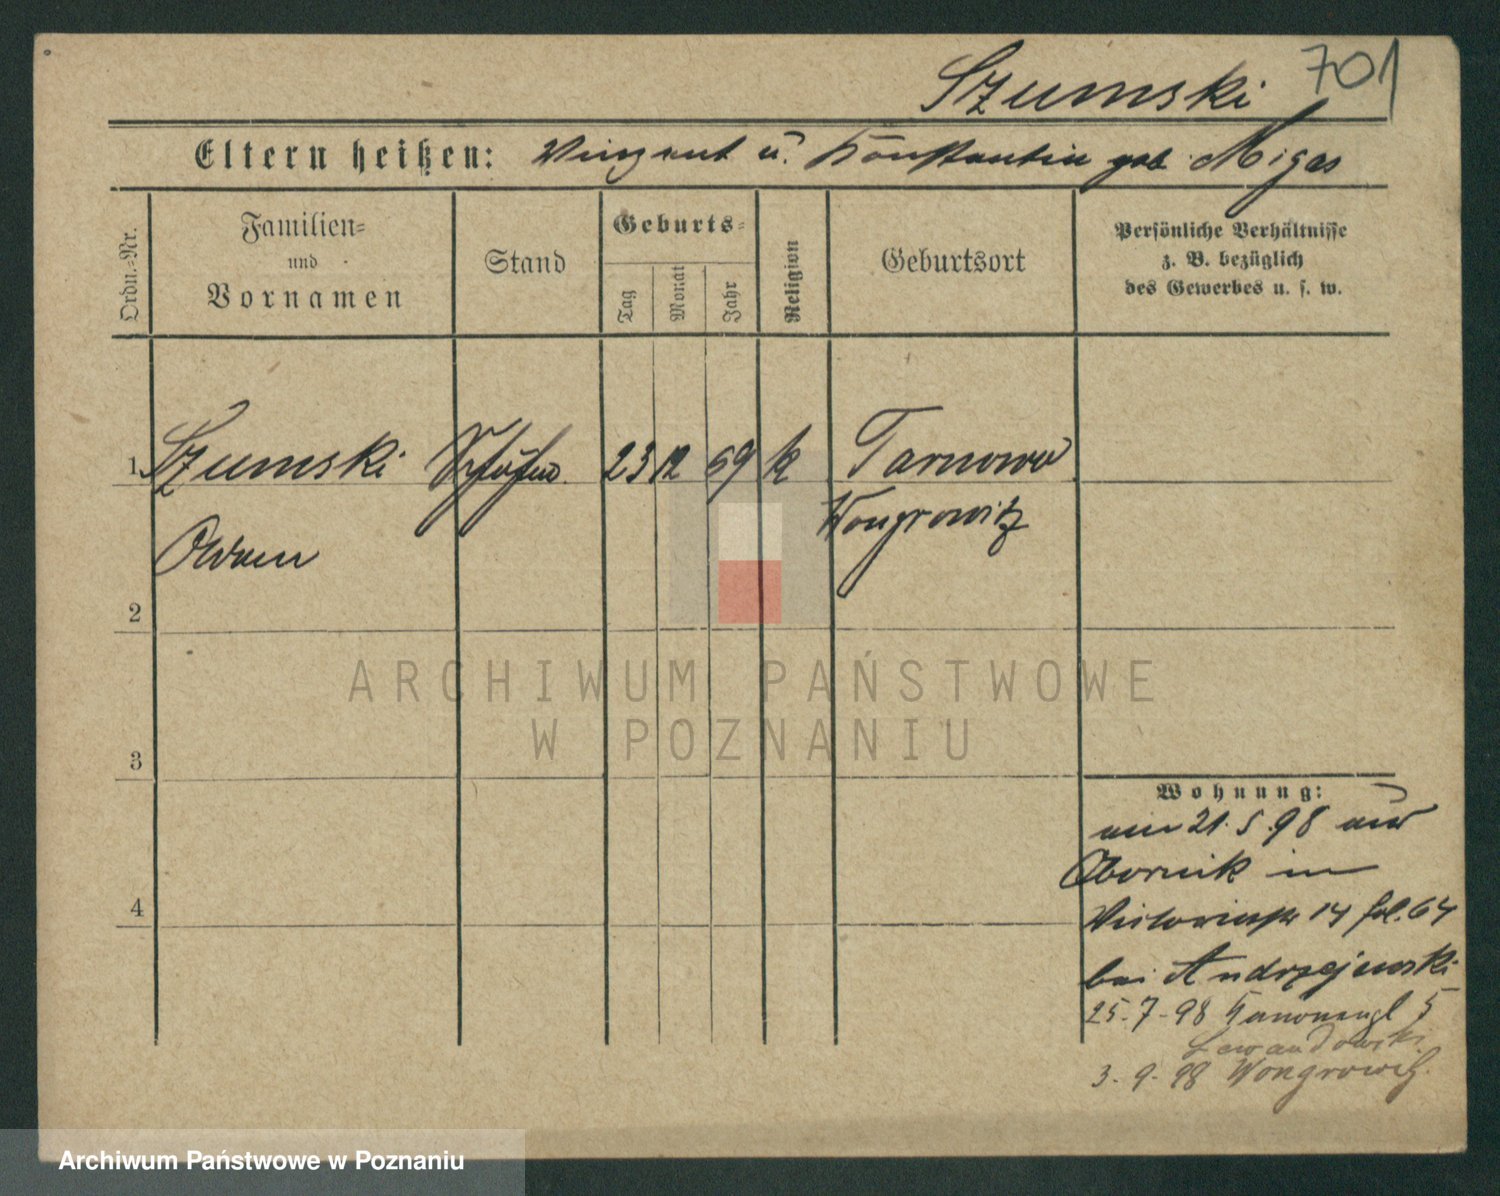 Szumski 701
Eltern heißen: Vinzent u. Konstantin geb. Migas
Ordn.-Nr.
Familien-
und
Vornamen
Stand
Geburts-
Tag
Monat
Jahr
Religion
Geburtsort
Persönliche Verhältnisse
z. B. bezüglich
des Gewerbes u. s. w.
1. Szumski 23 12 69 k Tarnowo
Wongrowitz
Adam
2
3
4
ARCHIWUM PAŃSTWOWE
W POZNANIU
Wohnung:
21.5.98 aus
Obornik in
Victoriastr 14 fol. 64
bei Andrzejewski
25-7-98 Kanonengl 5
Lewandowski
3-9-98 Wongrowitz.
Archiwum Państwowe w Poznaniu